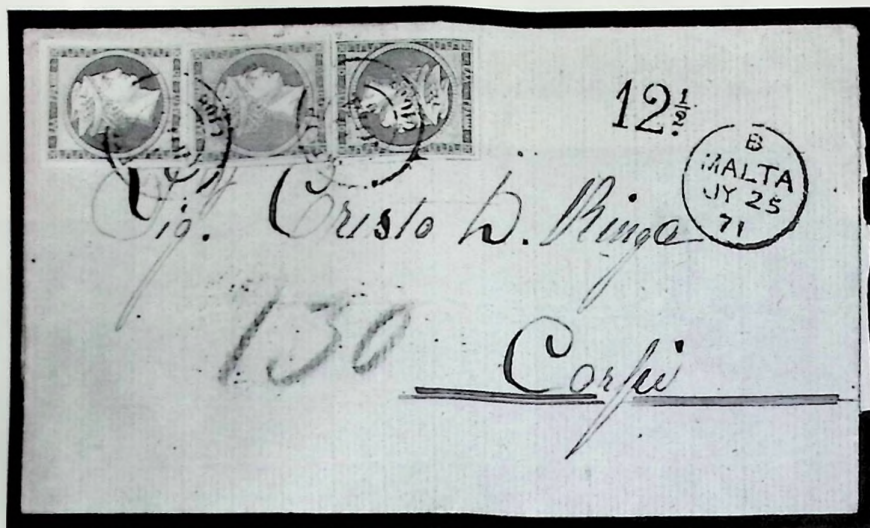 12½
B
MALTA
JY 25
71
Sig. Cristo D. Ringa
130
Corfù